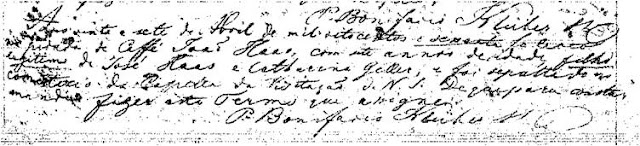 P. Bonifacio Kluber
Aos vinte e sete de Abril de mil oitocentos e sesenta e cinco
de Caffé João Haas, com sete annos de idade, filho
legitimo de José Haas e Catharina Geller, e foi sepultado no
Cemiterio da Capella da Visitação de N. S. Do que para constar
mandei fazer este Termo que assignei.
P. Bonifacio Kluber